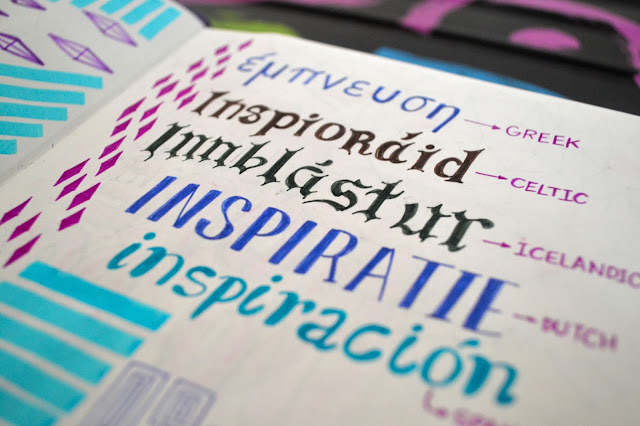 έμπνευση → GREEK
Inspioráid → CELTIC
Innblástur → ICELANDIC
INSPIRATIE → DUTCH
inspiración